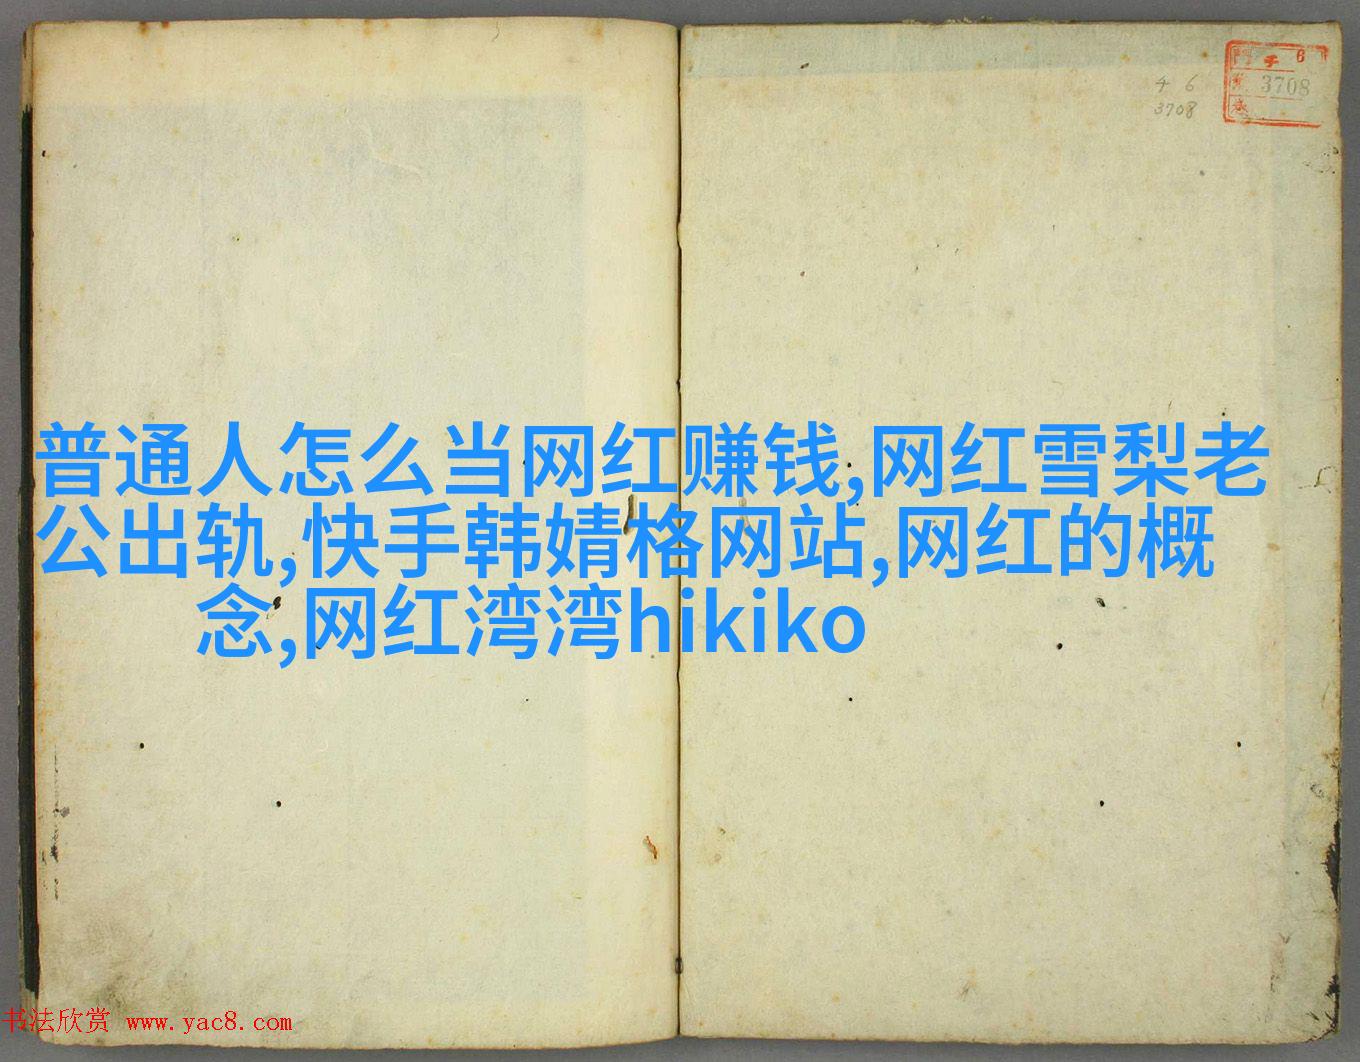 4 6
3708
6
3708
普通人怎么当网红赚钱,网红雪梨老
公出轨,快手韩婧格网站,网红的概
念,网红湾湾hikiko
书法欣赏 www.yac8.com